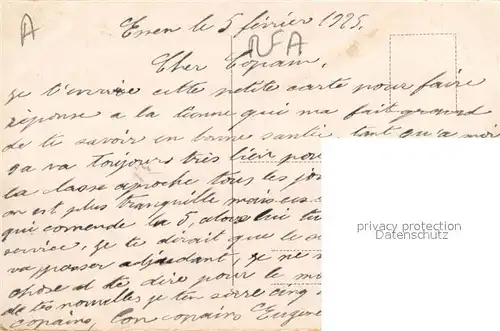 A
Essen le 5 février 1925.
RFA
Cher Copain,
je t'envoie cette petite carte pour faire
réponse a la tienne qui ma fait grand
de te savoir en bonne santé, tant qu'a moi
ça va toujours très bien pour
la classe aproche tous les jou
on est plus tranquille mais
qui comende la 5, alors
service. je te dirait que le se
va passer adjudant, je ne
chose a te dire pour le mo
de tes nouvelles je te serre cinq
copains, ton copains Eugène
privacy protection
Datenschutz